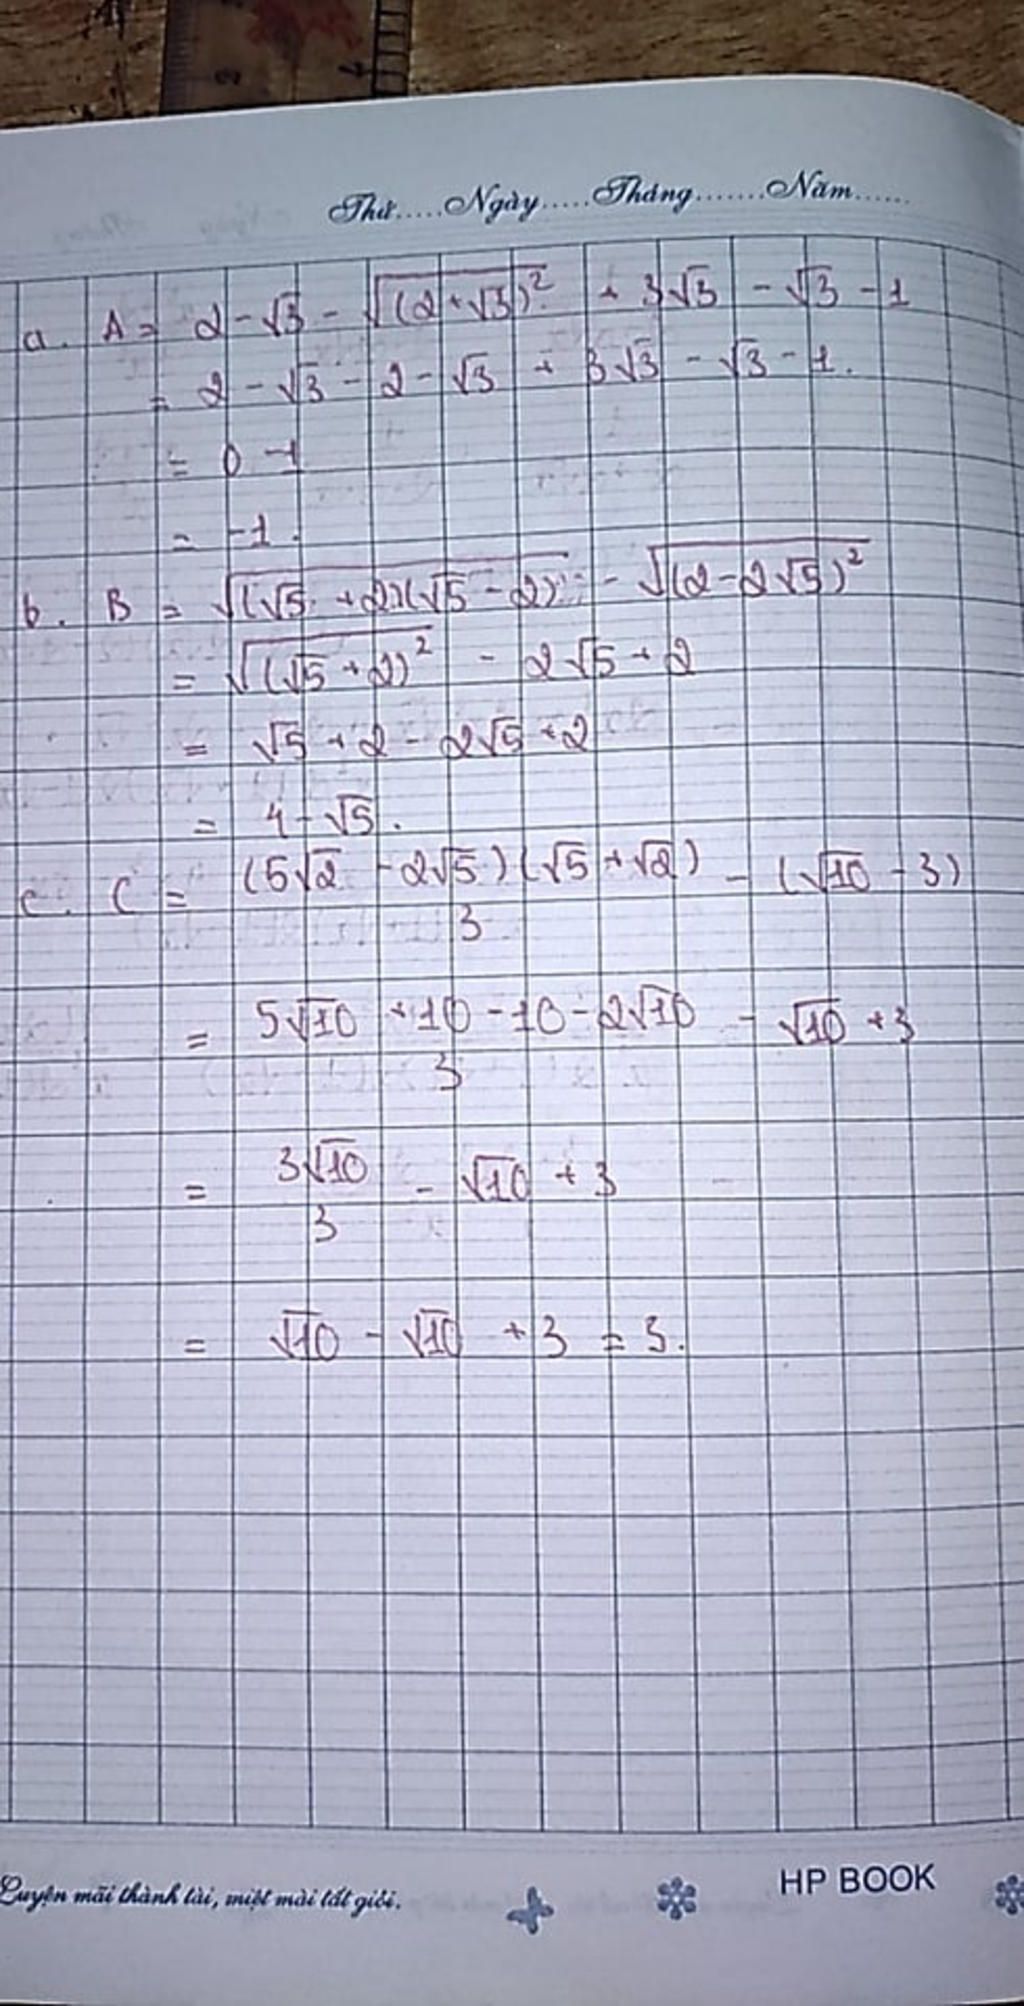 Thứ.....Ngày.....Tháng.......Năm......
a. A = 2 - √3 - √(2 + √3)² + 3√3 - √3 - 1
= 2 - √3 - 2 - √3 + 3√3 - √3 - 1.
= 0 - 1
= -1.
b. B = √(√5 + 2)(√5 - 2) - √(2 - 2√5)²
= √(√5 + 2)² - 2√5 + 2
= √5 + 2 - 2√5 + 2
= 4 - √5.
c. C = (5√2 - 2√5)(√5 + √2) / 3 - (√10 - 3)
= 5√10 + 10 - 10 - 2√10 / 3 - √10 + 3
= 3√10 / 3 - √10 + 3
= √10 - √10 + 3 = 3.
HP BOOK
Luyện mãi thành tài, miệt mài tất giỏi.